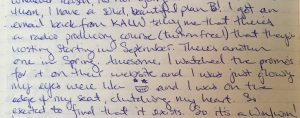 then, I have a solid, beautiful plan B! I got an
email back from KALW telling me that there's
a radio producing course (tuition free) that they're
hosting starting in September. There's another
one in Spring. Awesome. I watched the promos
for it on their website and I was just glowing
my eyes were like and I was on the
edge of my seat, clutching my heart. So
excited to find that it exists. So it's a